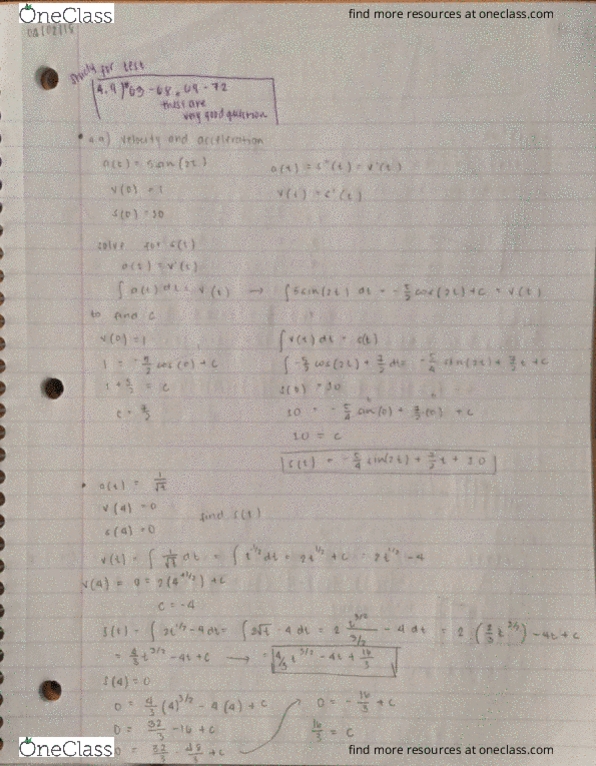 OneClass
find more resources at oneclass.com
study for test
4.9) 63-68, 69-72
these are
very good question
4.9) velocity and acceleration
a(t) = 5sin(2t)
a(t) = s''(t) = v'(t)
v(0) = 1
v(t) = s'(t)
s(0) = 10
solve for s(t)
a(t) = v'(t)
∫ a(t) dt = v(t) → ∫ 5sin(2t) dt = -5/2 cos(2t) + c = v(t)
to find c
v(0) = 1
∫ v(t) dt = s(t)
1 = -5/2 cos(0) + c
∫ -5/2 cos(2t) + 7/2 dt = -5/4 sin(2t) + 7/2 t + c
1 + 5/2 = c
s(0) = 10
c = 7/2
10 = -5/4 sin(0) + 7/2 (0) + c
10 = c
s(t) = -5/4 sin(2t) + 7/2 t + 10
• a(t) = 1/√t
v(4) = 0
find s(t)
s(4) = 0
v(t) = ∫ 1/√t dt = ∫ t^1/2 dt = 2t^1/2 + c = 2t^1/2 - 4
v(4) = 0 = 2(4^1/2) + c
c = -4
s(t) = ∫ 2t^1/2 - 4 dt = ∫ 2√t - 4 dt = 2 t^3/2 / 3/2 - 4 dt = 2 (2/3 t^3/2) - 4t + c
= 4/3 t^3/2 - 4t + c → = 4/3 t^3/2 - 4t + 16/3
s(4) = 0
0 = 4/3 (4)^3/2 - 4(4) + c
0 = -16/3 + c
0 = 32/3 - 16 + c
16/3 = c
0 = 32/3 - 48/3 + c
OneClass
find more resources at oneclass.com